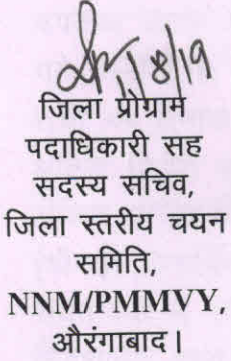 1/8/19
जिला प्रोग्राम
पदाधिकारी सह
सदस्य सचिव,
जिला स्तरीय चयन
समिति,
NNM/PMMVY,
औरंगाबाद।